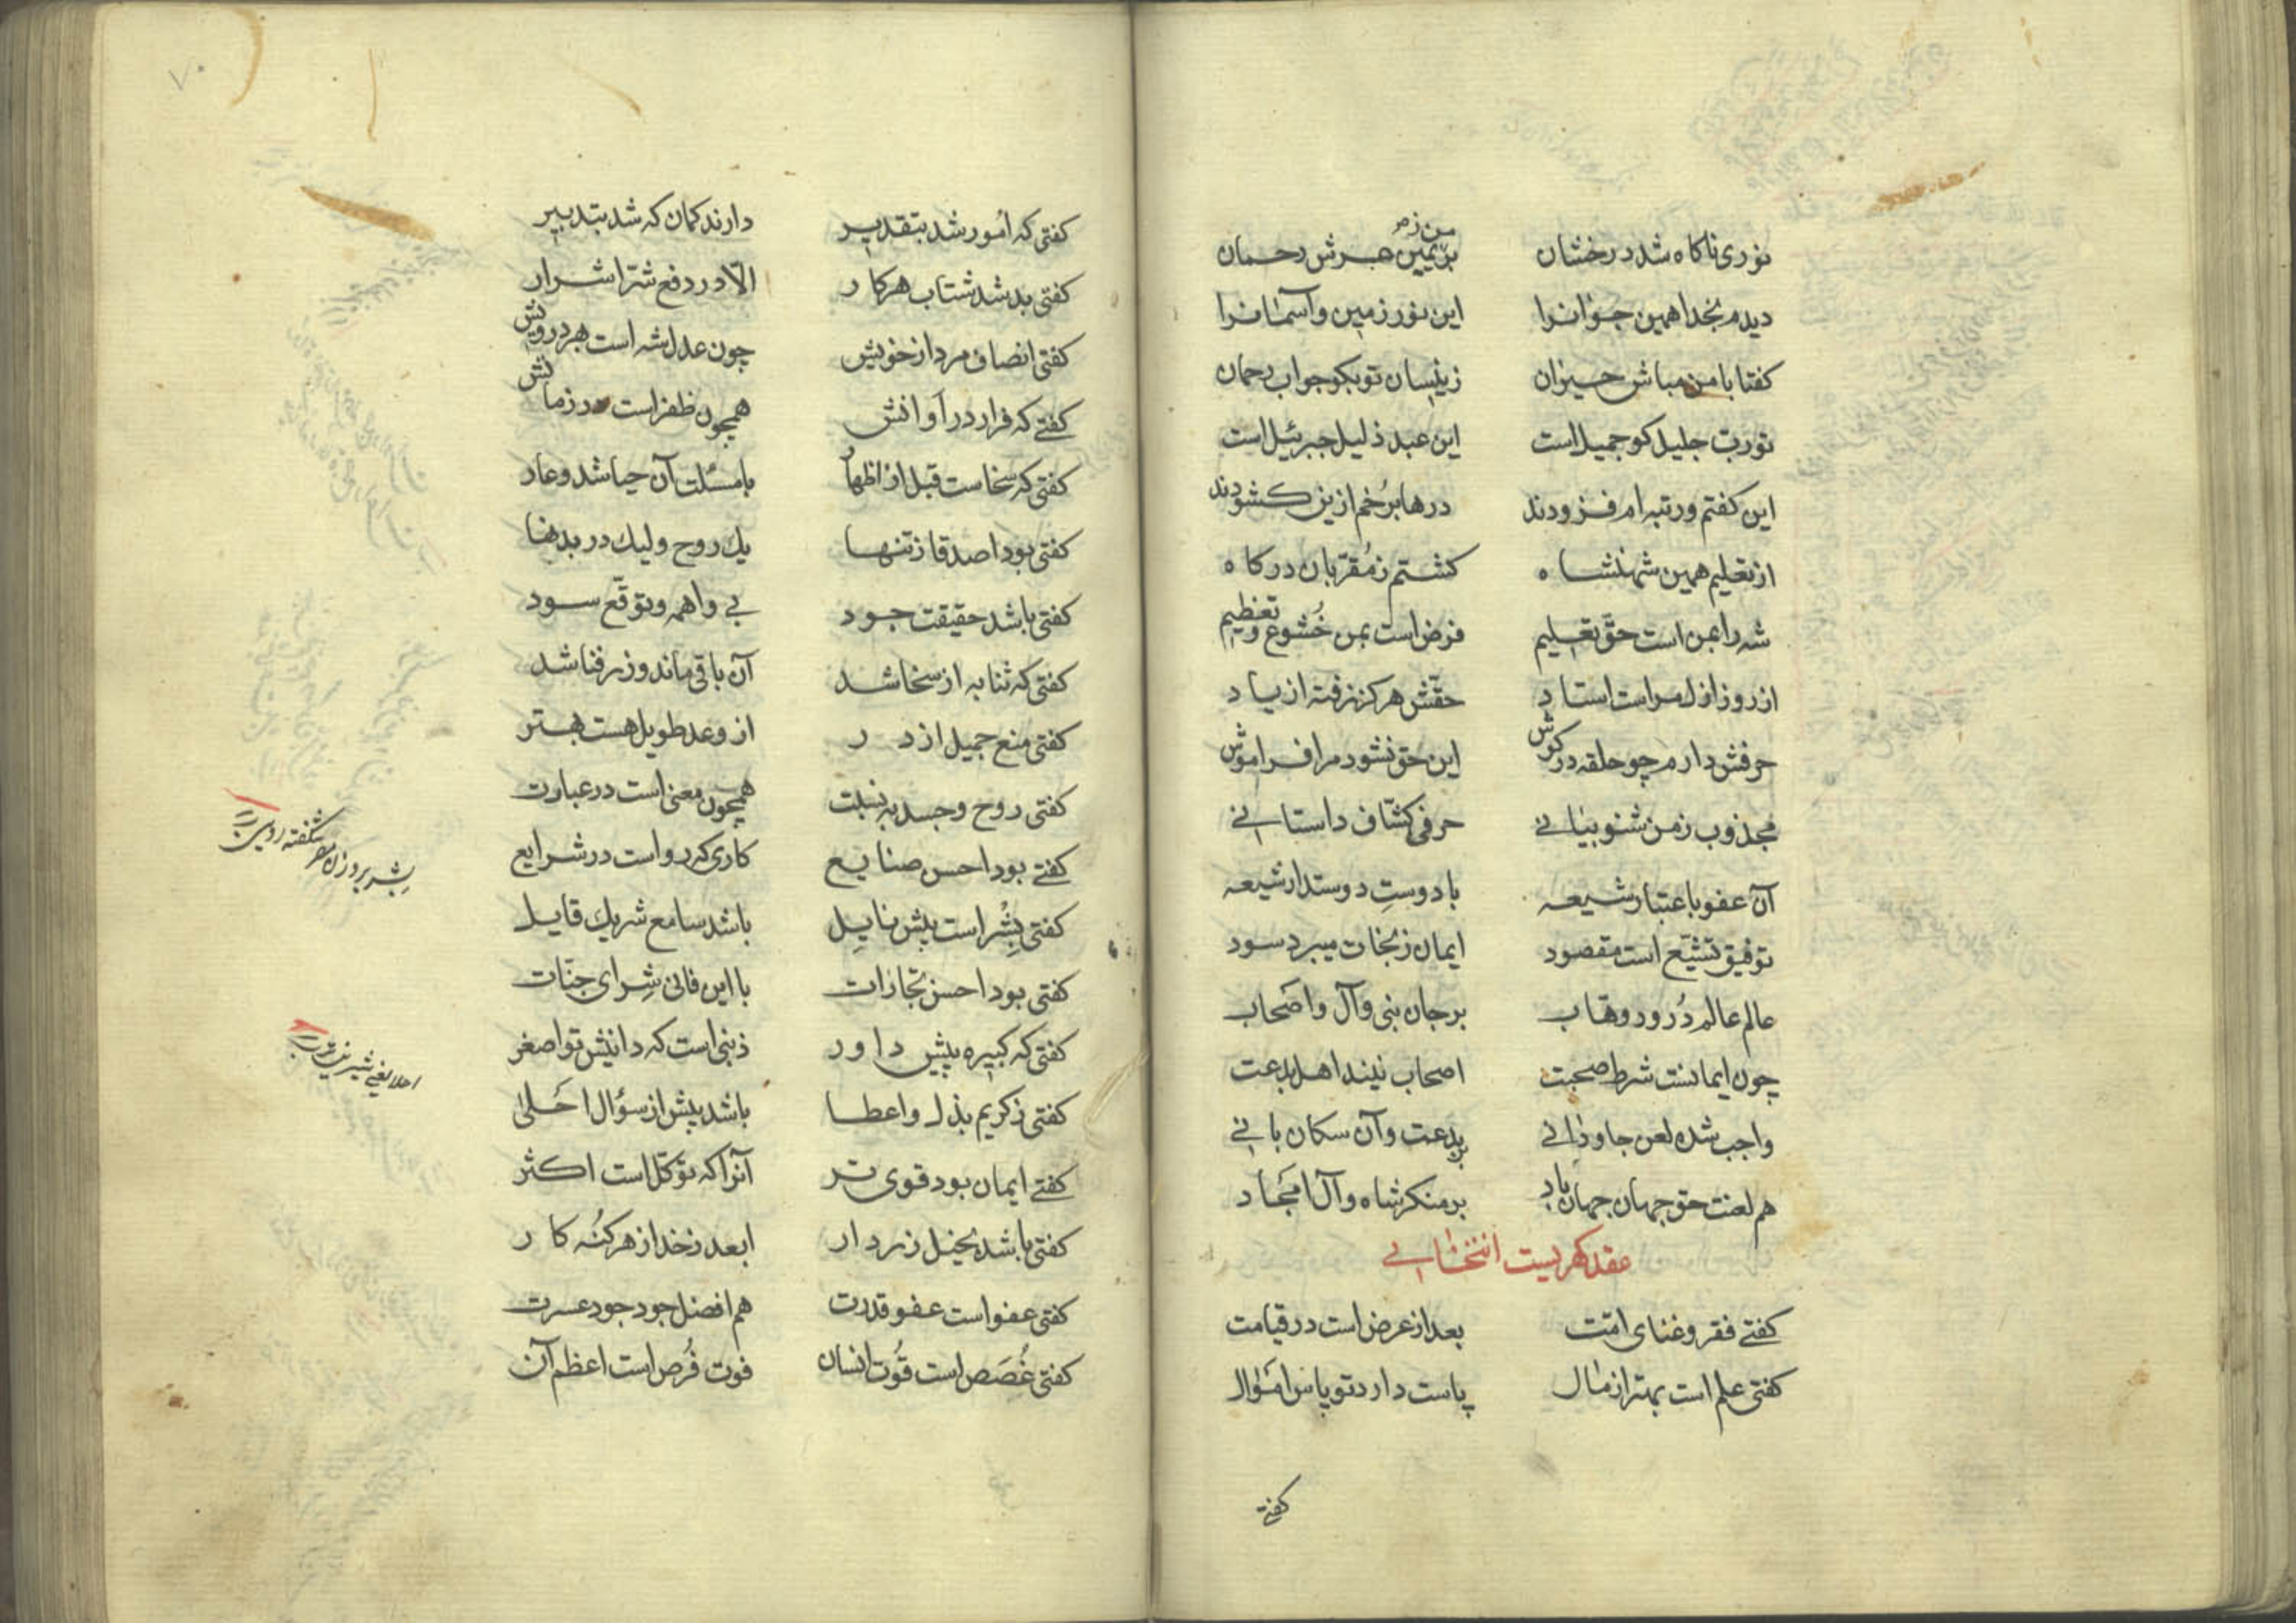 من زمر
نوری ناکاه شد درخشان بریمین عرش رحمان
دیدم بخدا همین جوانرا این نور زمین و آسمانرا
کفتا با من مباش حیران زینسان تو بکو جواب رحمان
تو رب جلیل کو جمیل است این عبد ذلیل جبرئیل است
این کفتم و رتبه ام فزودند درها برخم ازین کشودند
از تعلیم همین شهنشاه کشتم ز مقربان درکاه
شه را بمن است حق تعلیم فرض است بمن خشوع و تعظیم
از روز ازل مراست استاد حقش هرکز نرفته از یاد
حرفش دارم چو حلقه در کوش این حق نشود مرا فراموش
مجذوب ز من شنو بیانی حرفی کشاف داستانی
آن عفو باعتبار شیعه با دوستِ دوستدار شیعه
توفیق تشیّع است مقصود ایمان ز نجات میبرد سود
عالم عالم دُرود وهاب بر جان نبی و آل و اصحاب
چون ایمانست شرط صحبت اصحاب نیند اهل بدعت
واجب شده لعن جاودانی بر بدعت و آن سکان بانی
هم لعنت حق جهان جهان باد بر منکر شاه و آل امجاد
عقد کهریست انتخابی
کفتی فقر و غنای امّت بعد از عرض است در قیامت
کفتی علم است بهتر از مال پاست دارد تو پاس اموال
کفتی
۷۰
کفتی که اُمور شد بتقدیر دارند کمان که شد بتدبیر
کفتی بد شد شتاب هر کار الّا در دفع شرّ اشرار
کفتی انصاف مرد از خویش چون عدل شه است بهر درویش
کفتی که فرار در اَوانش همچون ظفر است در زمانش
کفتی که سخاست قبل از اظهار با مسئلت آن حیا شد و عار
کفتی بود اصدقا ز تنها یک روح ولیک در بدنها
کفتی باشد حقیقت جود بی واهمه و توقّع سود
کفتی که ثنا به از سخا شد آن باقی ماند و زر فنا شد
کفتی منع جمیل از در از وعد طویل هست بهتر
کفتی روح و جسد به نسبت همچون معنی است در عبارت
کفتی بود احسن صنایع کاری که رواست در شرایع
کفتی بِشْر است پیش نایِل باشد سامع شریک قایل
کفتی بود احسن تجارات با این فانی شِرای جنّات
کفتی که کبیره پیش داور ذنبی است که دانیش تو اصغر
کفتی ز کریم بذل و اعطا باشد پیش از سؤال احلیٰ
کفتی ایمان بود قوی تر آنرا که توکّل است اکثر
کفتی باشد بخیل زردار ابعد ز خدا ز هر کنُه کار
کفتی عفو است عفو قدرت هم افضل جود جود عسرت
کفتی غُصَص است قُوت انسان فوت فُرص است اعظم آن
بِشر بر وزن مصر شکفته روئی
احلا یعنی شیرین تر